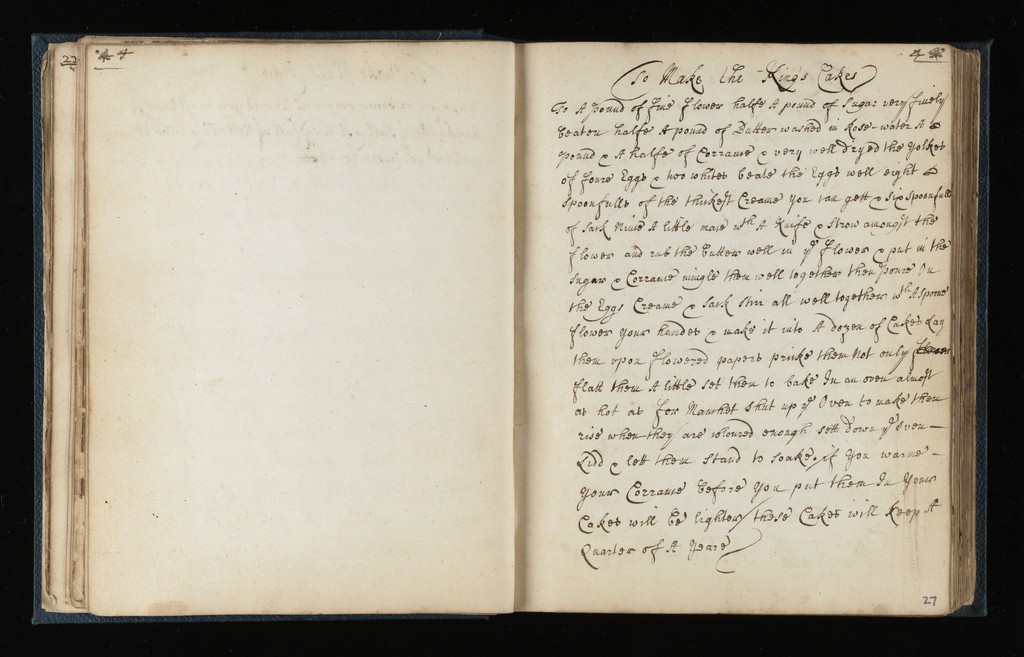 22
4
4
To Make the Kings Cakes
To A pound of fine flower halfe A pound of Sugar very finely
beaten halfe A pound of Butter washed in Rose-water A
pound & A halfe of Corrance & very well dryed the yolkes
of foure Eggs & two whites beate the Eggs well eight
spoonfulls of the thickest Creame you can gett & six spoonfull
of Sack Mince A little mace wth A Knife & strow amongst the
flower and rub the butter well in ye flower & put in the
Sugar & Corrance mingle them well together then poure On
the Eggs Creame & Sack stir all well together wth A spone
flower your handes & make it into A dozen of Cakes Lay
them upon flowered papers pricke them Not only
flatt them A little set them to bake In an oven almost
as hot as for Manchet shut up ye Oven to make them
rise when they are coloured enough sett down ye Oven-
Lidd & lett them stand to soake, if you warme-
your Corrance before you put them In your
Cakes will be lighter these Cakes will keep A
Quarter of A yeare
27